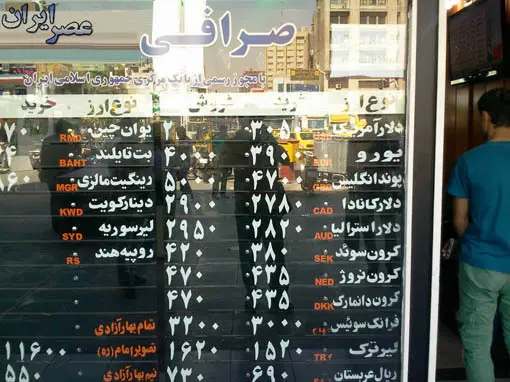 عصر ایران
صرافی
با مجوز رسمی از بانک مرکزی جمهوری اسلامی ایران
نوع ارز خرید فروش نوع ارز خرید
دلار آمریکا یوان چین RMD
یورو EUR ۳۹۰۰ ۴۰۰۰ بت تایلند BAHT
پوند انگلیس GBD رینگیت مالزی MGR
دلار کانادا CAD ۲۷۸۰ ۲۹۰۰ دینار کویت KWD
دلار استرالیا AUD ۲۸۲۰ ۲۹۵۰ لیر سوریه SYD
کرون سوئد SEK ۳۸۰ ۴۲۰ روپیه هند RS
کرون نروژ NED ۴۳۵ ۴۷۰
کرون دانمارک DKK ۴۳۵ ۴۷۰
فرانک سوئیس ۳۰۰۰ ۳۲۰۰ تمام بهار آزادی
لیر ترک TRY ۱۵۲۰ ۱۶۲۰ تصویر امام (ره) ۱۱۶۰۰
ریال عربستان ۶۹۰ ۷۳۰ نیم بهار آزادی